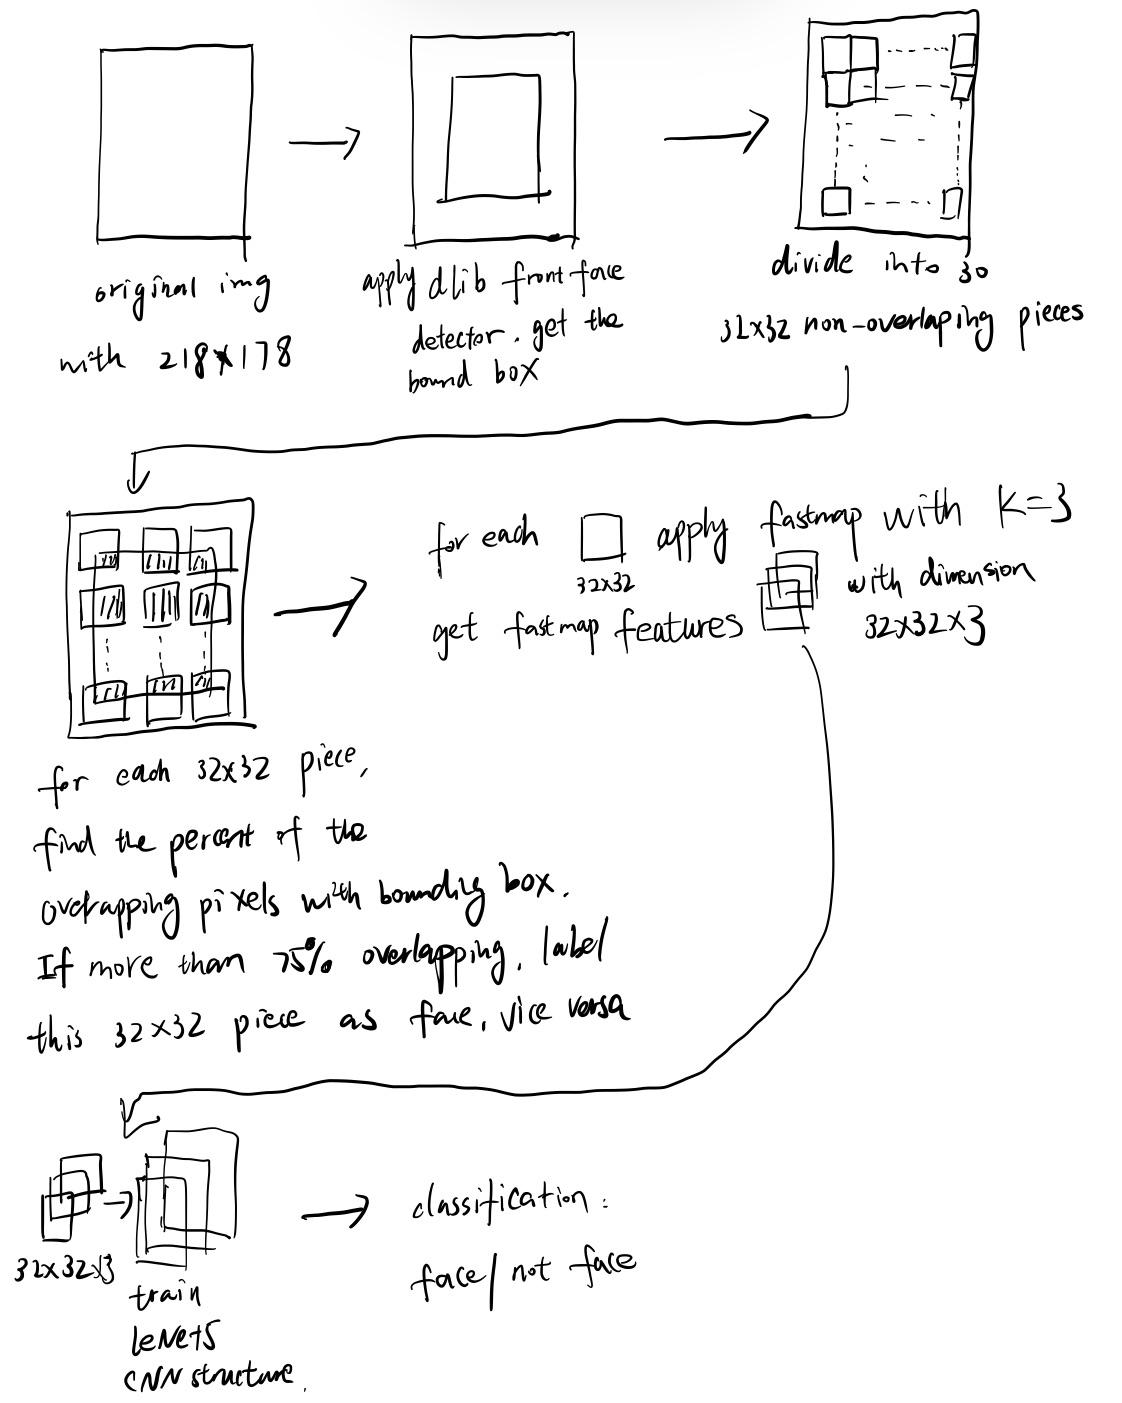 original img
with 218x178
apply dlib front face
detector. get the
bound box
divide into 30
32x32 non-overlaping pieces
for each 32x32 piece,
find the percent of the
overapping pixels with bounding box.
If more than 75% overlapping, label
this 32x32 piece as face, vice versa
for each
32x32
apply fastmap with K=3
get fastmap features
with dimension
32x32x3
32x32x3
train
LeNet5
CNN structure.
classification:
face/not face